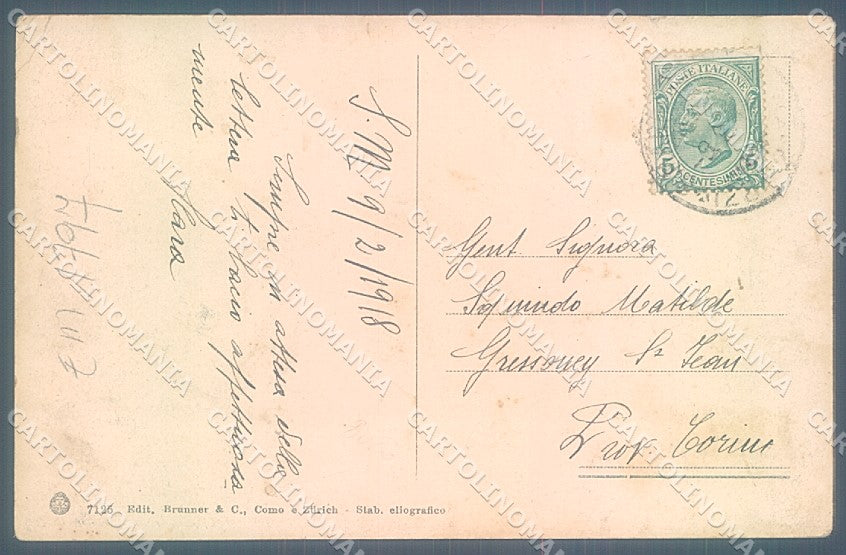 S. M 9/2/1918
Sempre in attesa della
lettera ti bacio affettuosa
mente
Clara
POSTE ITALIANE
5 CENTESIMI 5
Gent. Signora
Squindo Matilde
Gressoney St Jean
Prov Torino
7125 Edit. Brunner & C., Como e Zürich - Stab. eliografico
CARTOLINOMANIA